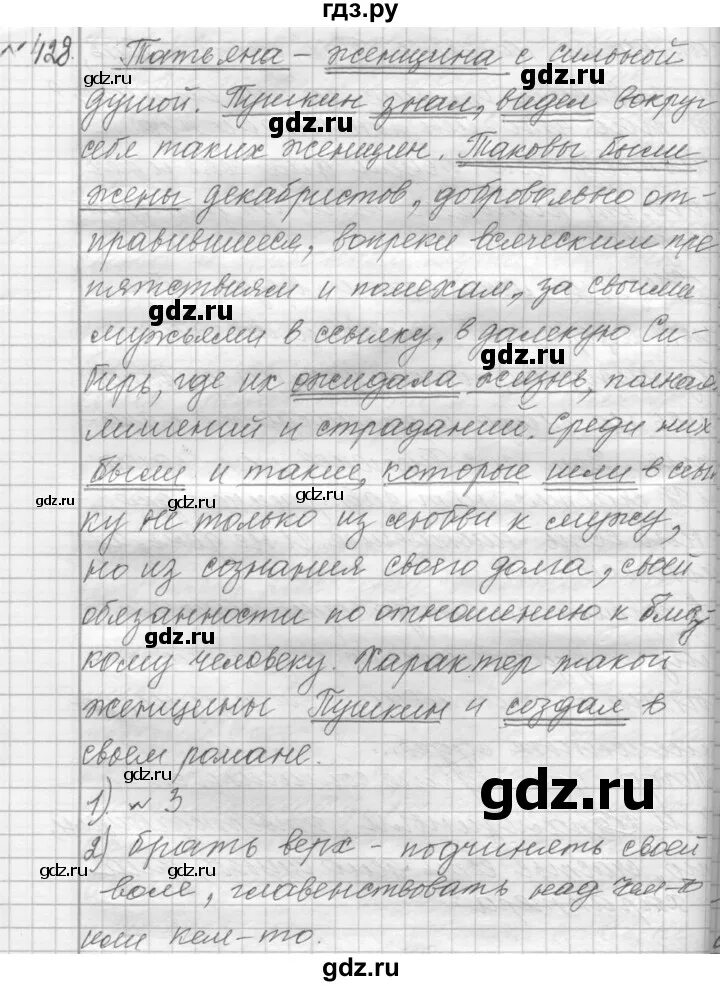 гдз.ру
№ 428. Татьяна – женщина с сильной
душой. Пушкин знал, видел вокруг
gdz.ru gdz.ru
себя таких женщин. Таковы были
жены декабристов, добровольно от-
правившиеся, вопреки всяческим пре
пятствиям и помехам, за своими
gdz.ru
мужьями в ссылку, в далекую Си-
gdz.ru
бирь, где их ожидала жизнь, полная
лишений и страданий. Среди них
были и такие, которые шли в ссыл
gdz.ru gdz.ru gdz.ru
ку не только из любви к мужу,
но из сознания своего долга, своей
обязанности по отношению к близ-
gdz.ru
кому человеку. Характер такой
женщины Пушкин и создал в
своем романе.
gdz.ru gdz.ru
1) № 3
2) брать верх – подчинять своей
gdz.ru gdz.ru
воле, главенствовать над чем-то
или кем-то.
gdz.ru